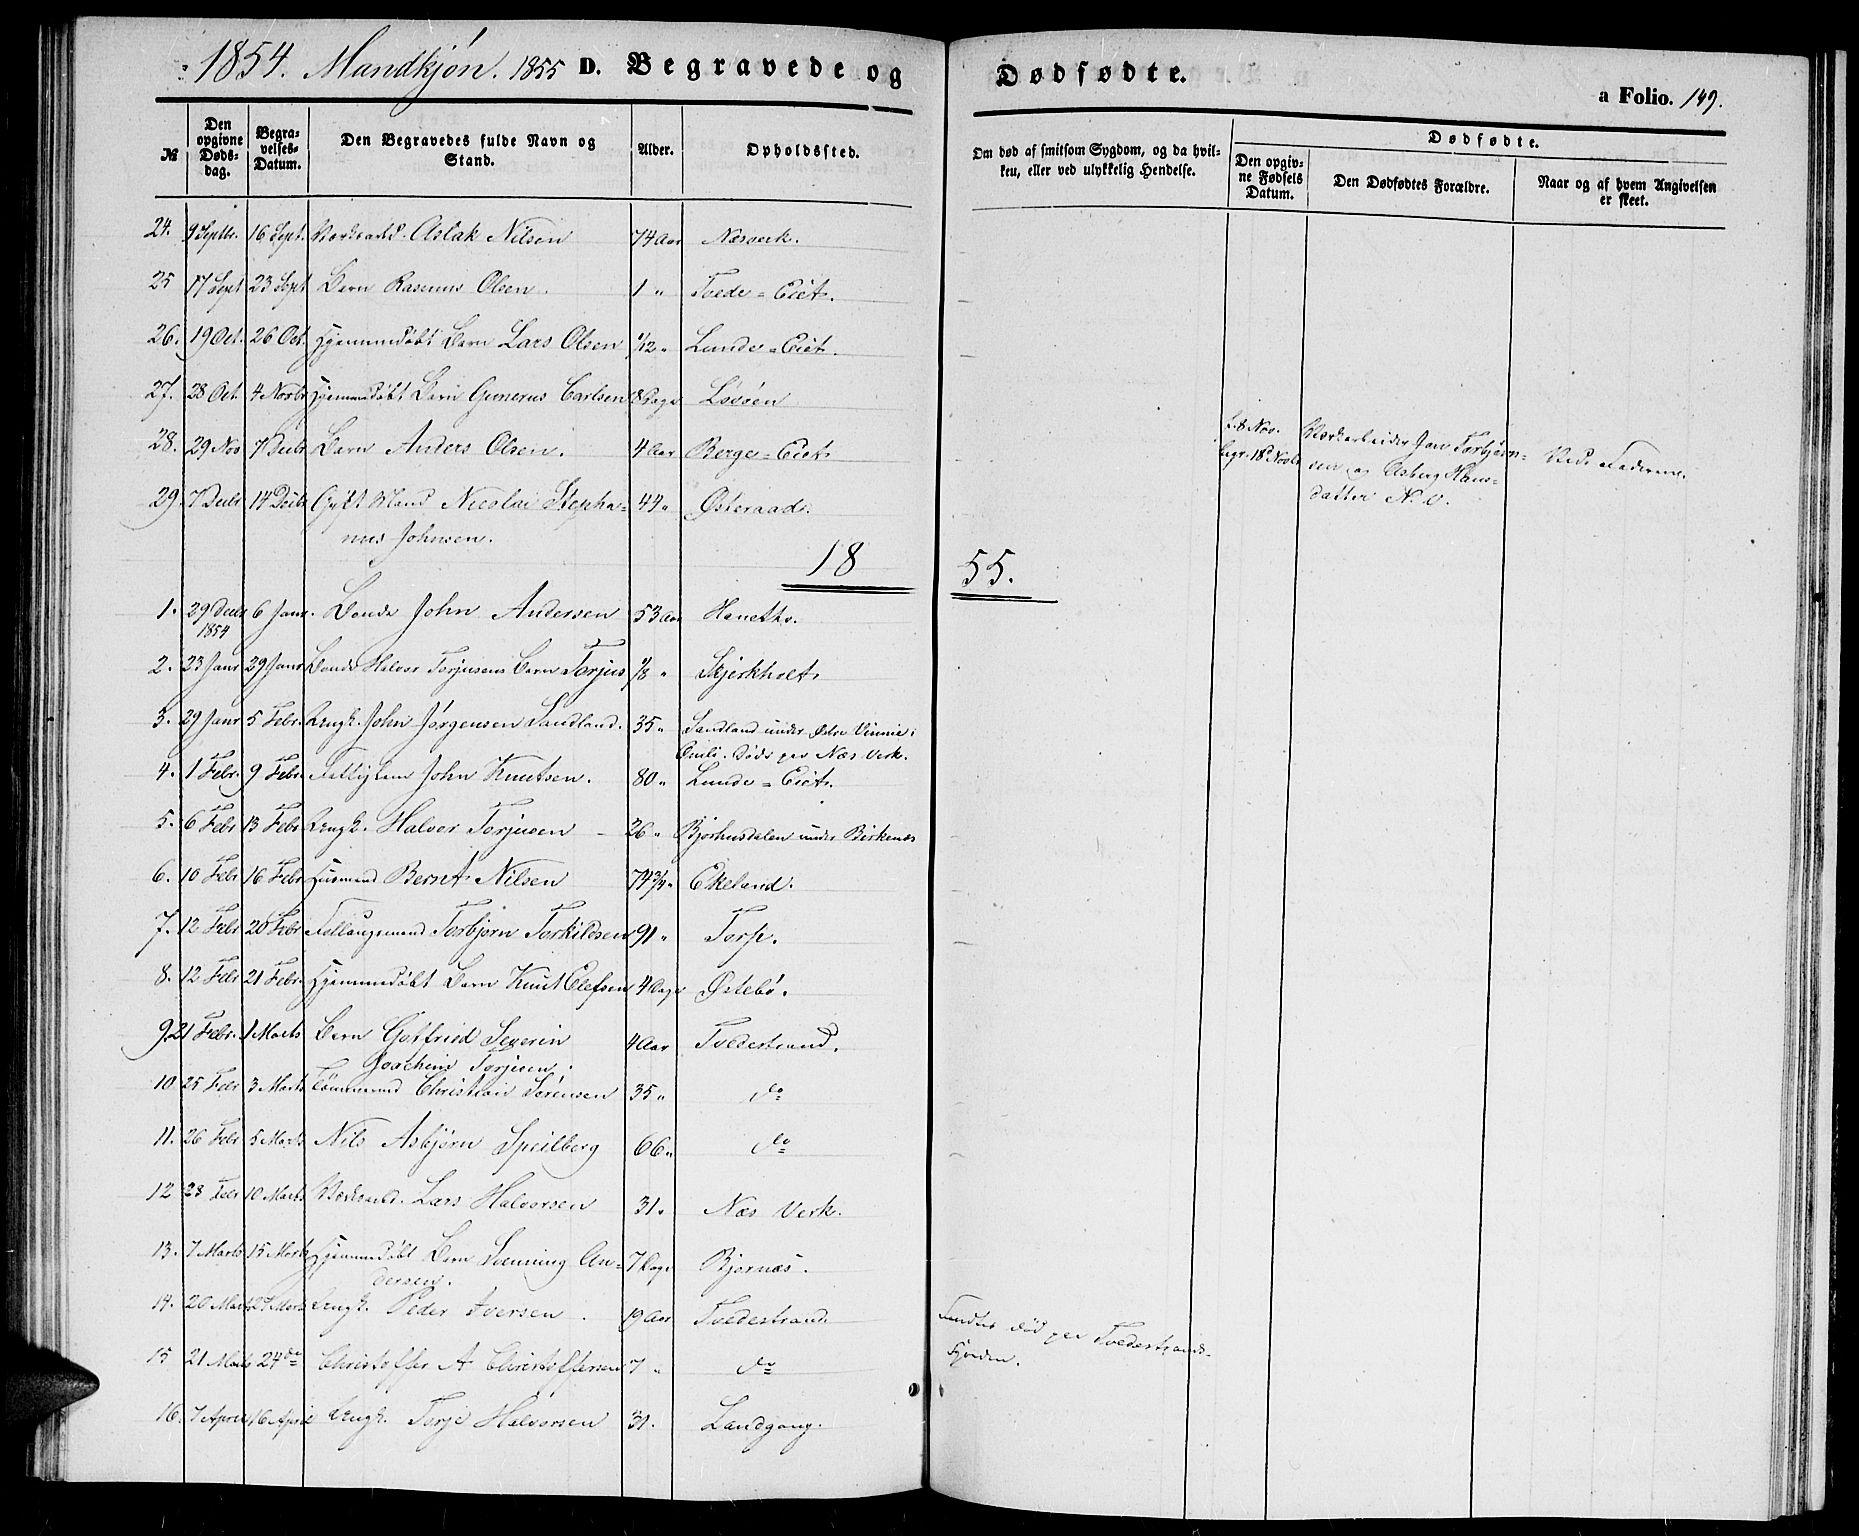 1854. Mandkjón. 1855 D. Begravede og Dødfødte.
a Folio. 149.
№ Den opgivne Dødsdag. Begravelses-Datum. Den Begravedes fulde Navn og Stand. Alder. Opholdssted. Om død af smitsom Sygdom, og da hvilken, eller ved ulykkelig Hendelse. Dødfødte. Den opgivne Fødsels Datum. Den Dødfødtes Forældre. Naar og af hvem Angivelsen er skeet.
24. 9 Septbr. 16 Sept. Aslak Nilsen 74 Aar Næsverk.
25 17 Sept 23 Sept Barn Rasmus Olsen. 1 " Tvede-Eiet.
26. 19 Oct. 26 Oct. Hjemmedöbt Barn Lars Olsen 1/12 " Lunde-Eiet.
27. 28 Oct. 4 Novbr Hjemmedöbt Barn Gunerus Carlsen 8 Dage Lövöen
28. 29 Nov 7 Decbr Barn Anders Olsen. 4 Aar Berge-Eiet
8 Nov. begr. 18 Novbr Værkarbeider Jens Torbjörn-
sen og Asberg Hans-
datter N. V.
Ved Faderen.
29. 7 Decbr 14 Decbr Gift Mand Nicolai Stepha-
nus Johnsen. 44 " Østeraad.
1855.
1. 29 Decbr 1854 6 Janr. Bonde John Andersen 53 Aar Haneths.
2. 23 Janr 29 Janr Bonde Halvor Torjusens Barn Torjus 1/8 " Skjerkholt
3. 29 Janr 5 Febr. Ungk. John Jörgensen Sandland. 35 " Sandland under Østre Vimme i
Omli. Döde paa Næs Verk.
4. 1 Febr. 9 Febr. Fattiglem John Knutsen. 80 " Lunde-Eiet.
5. 6 Febr 13 Febr Ungk. Halvor Torjusen 26 " Bjorhusdalen under Birkenæs
6. 10 Febr 16 Febr Husmand Bernt Nilsen 74 3/4 " Ekeland.
7. 12 Febr 20 Febr Follaugsmand Torbjörn Torkildsen 91 " Torp.
8. 12 Febr 21 Febr. Hjemmedöbt Barn Knut Olefsen 4 Dage Østebö.
9. 21 Febr. 1 Marts Barn Gotfried Severin
Joachim Torjusen. 4 Aar Tvedestrand.
10 25 Febr 3 Marts Tömmermd Christian Sörensen 35 " do
11. 26 Febr 5 Marts Nils Asbjörn Speilberg 66 " do
12 28 Febr 10 Marts Værksarb. Lars Halvorsen 31 " Næs Verk.
13. 7 Marts 15 Marts Hjemmedöbt Barn Svenning An-
dersen. 7 Dage Bjornæs.
14. 20 Marts 27 Marts Ungk. Peder Iversen. 19 Aar Tvedestrand
Fundet död paa Tvedestrands-
Fjorden.
15 21 Marts 24 do Christoffer A Christoffersen 7 " do
16. 7 April 16 April Ungk. Torje Halvorsen 31. Landgang.